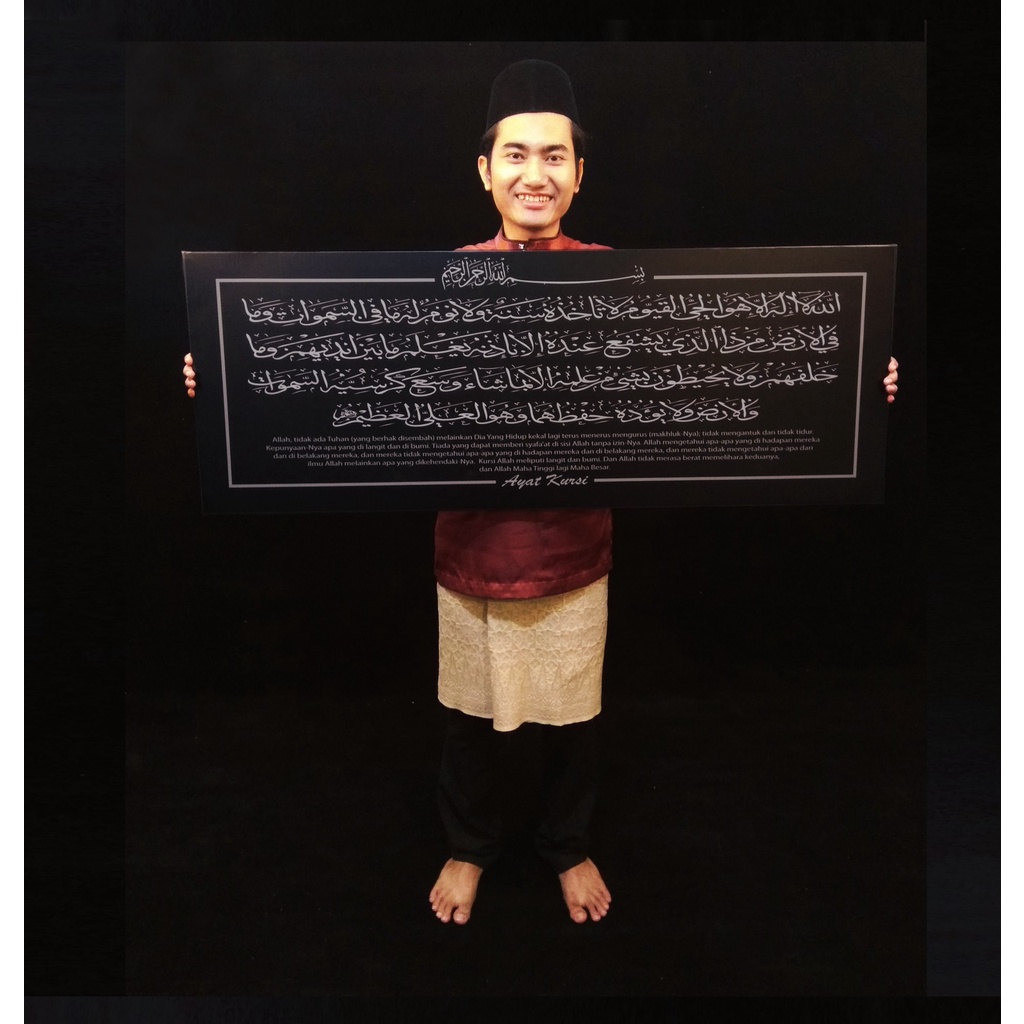 بسم الله الرحمن الرحيم
الله لا اله الا هو الحي القيوم لا تأخذه سنة ولا نوم له ما في السموات وما
في الارض من ذا الذي يشفع عنده الا باذنه يعلم ما بين ايديهم وما
خلفهم ولا يحيطون بشيء من علمه الا بما شاء وسع كرسيه السموات
والارض ولا يؤده حفظهما وهو العلي العظيم
Allah, tidak ada Tuhan (yang berhak disembah) melainkan Dia Yang Hidup kekal lagi terus menerus mengurus (makhluk-Nya); tidak mengantuk dan tidak tidur.
Kepunyaan-Nya apa yang di langit dan di bumi. Tiada yang dapat memberi syafa'at di sisi Allah tanpa izin-Nya. Allah mengetahui apa-apa yang di hadapan mereka
dan di belakang mereka, dan mereka tidak mengetahui apa-apa yang di hadapan mereka dan di belakang mereka, dan mereka tidak mengetahui apa-apa dari
ilmu Allah melainkan apa yang dikehendaki-Nya. Kursi Allah meliputi langit dan bumi. Dan Allah tidak merasa berat memelihara keduanya,
dan Allah Maha Tinggi lagi Maha Besar.
Ayat Kursi